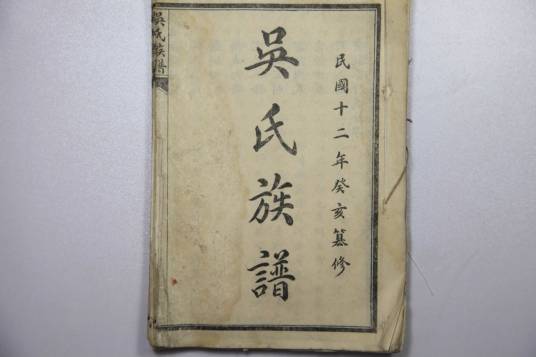 民國十二年癸亥纂修
吳氏族譜
吳氏族譜